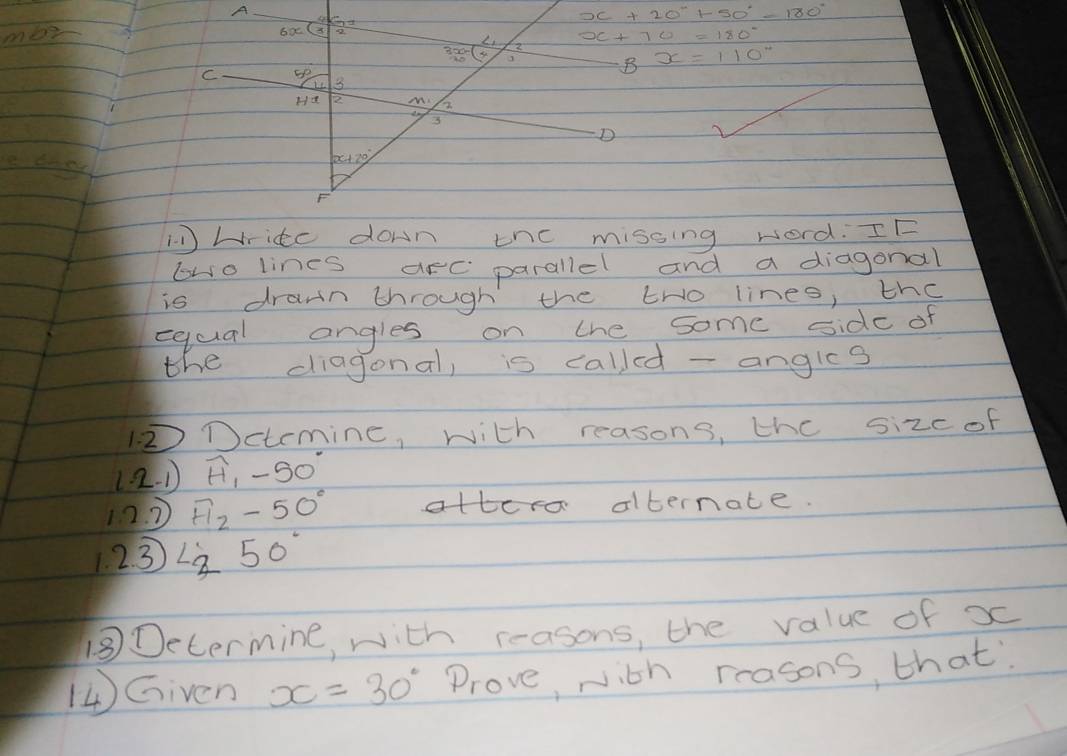 A
6x
3
2
3x
20
4
2
3
B
C
50
4
3
H1
2
M1
2
3
D
x+20°
F
x + 20° + 50° = 180°
x + 70 = 180°
x = 110°
1.1) Write down the missing word: If
two lines are parallel and a diagonal
is drawn through the two lines, the
equal angles on the same side of
the diagonal, is called - angles
1.2) Determine, with reasons, the size of
1.2.1) Ĥ₁ - 50°
1.2.2) Ĥ₂ - 50° alternate.
1.2.3) L̂₂ 50°
1.3) Determine, with reasons, the value of x
1.4) Given x = 30° Prove, with reasons, that: